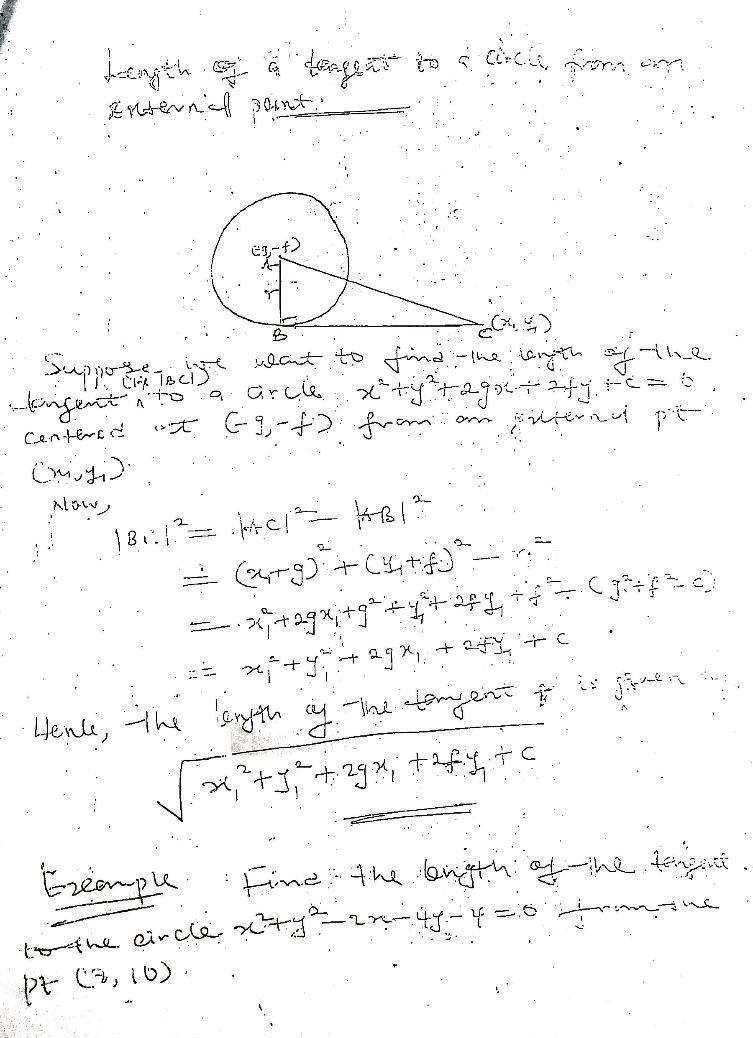 Length of a tangent to a circle from an
external point.
(-g,-f)
A
r
B
C(x₁ y₁)
Suppose we want to find the length of the
tangent (i.e |BC|) to a circle x²+y²+2gx+2fy+c=0
centered at (-g,-f) from an external pt
(x₁,y₁).
Now,
|BC|² = |AC|² - |AB|²
= (x₁+g)² + (y₁+f)² - r²
= x₁²+2gx₁+g²+y₁²+2fy₁+f² - (g²+f²-c)
= x₁²+y₁²+2gx₁+2fy₁+c
Hence, the length of the tangent is given
√x₁²+y₁²+2gx₁+2fy₁+c
Example Find the length of the tangent
to the circle x²+y²-2x-4y-4=0 from the
pt (, 10).